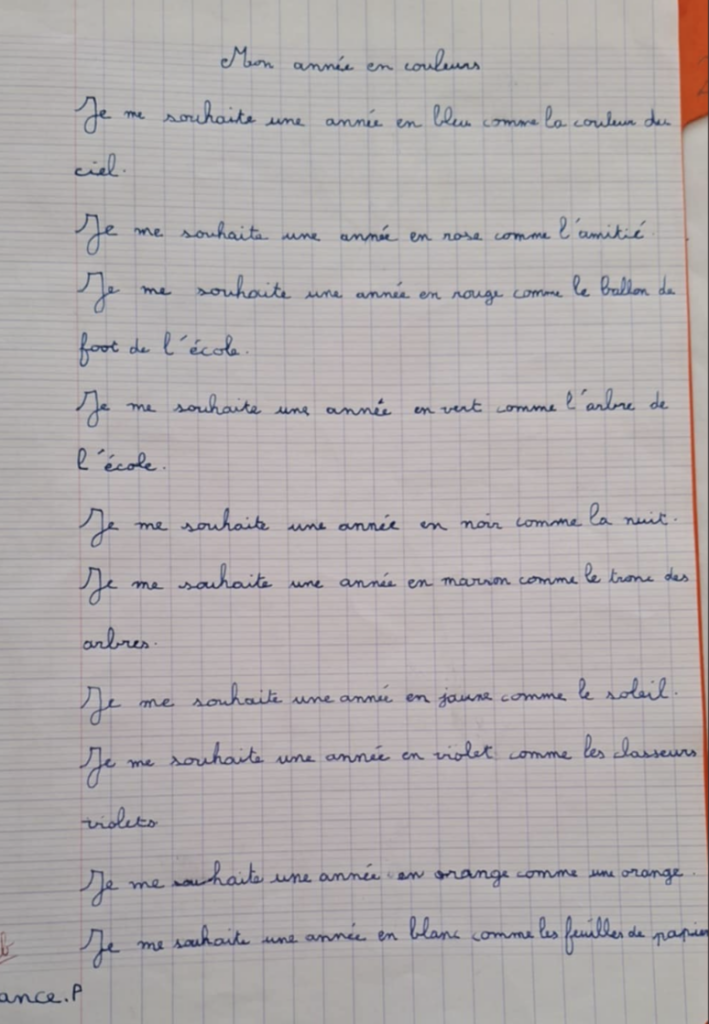 Mon année en couleurs
Je me souhaite une année en bleu comme la couleur du
ciel.
Je me souhaite une année en rose comme l'amitié.
Je me souhaite une année en rouge comme le ballon de
foot de l'école.
Je me souhaite une année en vert comme l'arbre de
l'école.
Je me souhaite une année en noir comme la nuit.
Je me souhaite une année en marron comme le tronc des
arbres.
Je me souhaite une année en jaune comme le soleil.
Je me souhaite une année en violet comme les classeurs
violets
Je me souhaite une année en orange comme une orange.
Je me souhaite une année en blanc comme les feuilles de papier
ance.P